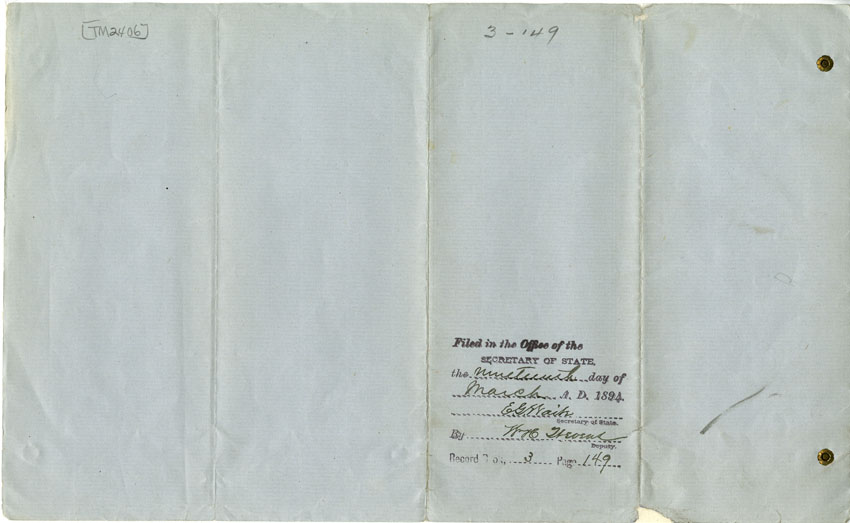 [TM2406]
3-149
Filed in the Office of the
SECRETARY OF STATE,
the nineteenth day of
March A. D. 1894
E G Waite
Secretary of State.
By W. H.
Deputy.
Record Book, 3 Page 149